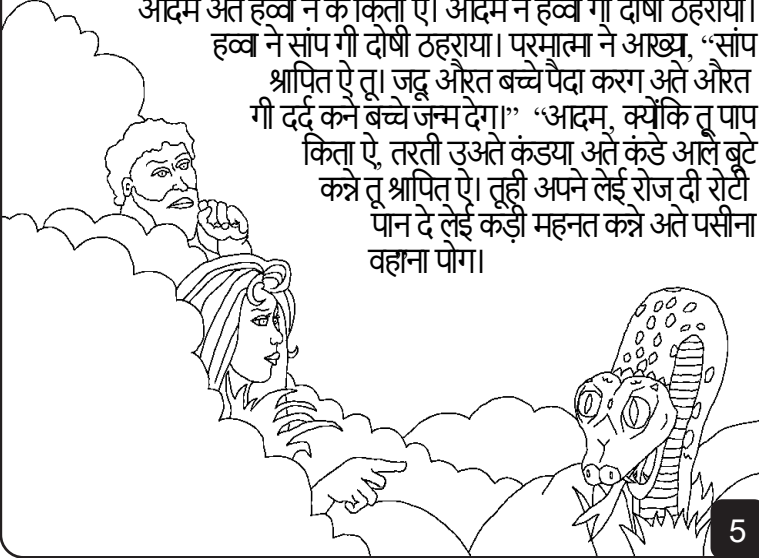 आदम अते हव्वा ने के किता ऐ। आदम ने हव्वा गी दोषी ठहराया।
हव्वा ने सांप गी दोषी ठहराया। परमात्मा ने आख्या, “सांप
श्रापित ऐ तू। जदू औरत बच्चे पैदा करग अते औरत
गी दर्द कने बच्चे जन्म देग।” “आदम, क्योंकि तू पाप
किता ऐ, तरती उअते कंडया अते कंडे आले बूटे
कन्ने तू श्रापित ऐ। तूही अपने लेई रोज दी रोटी
पान दे लेई कड़ी महनत कन्ने अते पसीना
वहाना पोग।
5